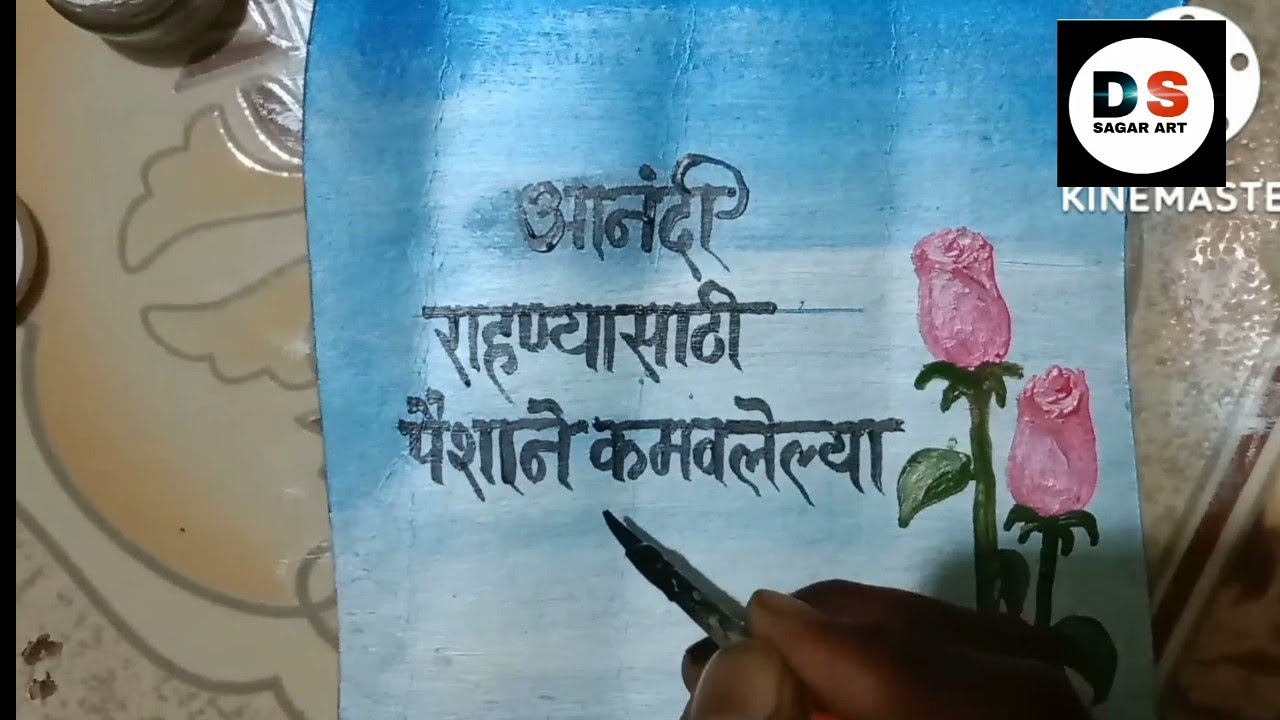 आनंदी
राहण्यासाठी
पैशाने कमवलेल्या
DS
SAGAR ART
KINEMASTE